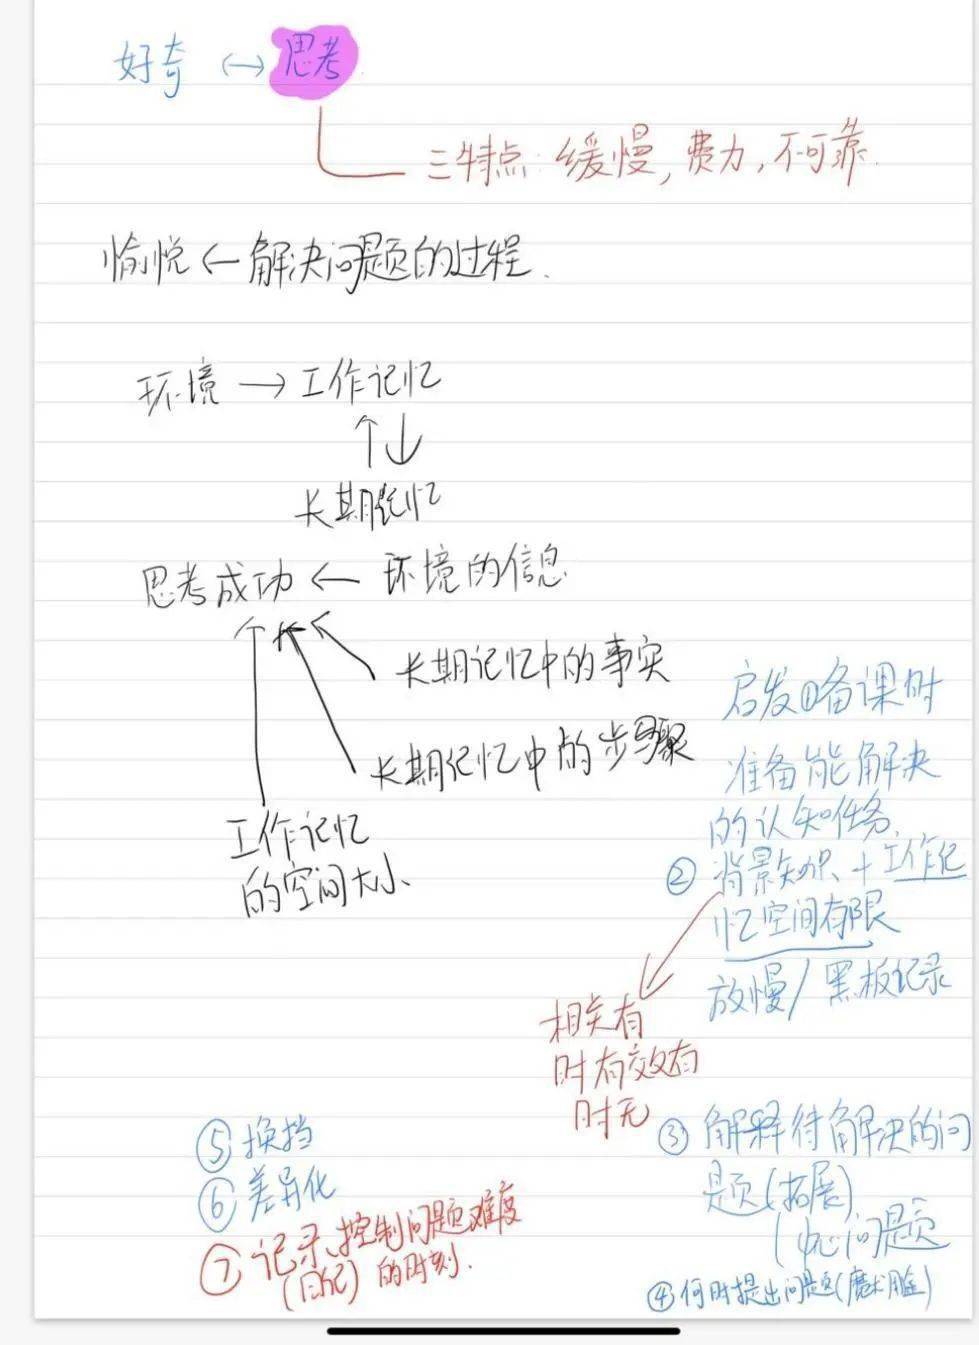 好奇 ↔ 思考
三特点:缓慢,费力,不可靠.
愉悦 ← 解决问题的过程.
环境 → 工作记忆
↑↓
长期记忆
思考成功 ← 环境的信息
长期记忆中的事实
长期记忆中的步骤
工作记忆
的空间大小
启发①备课时
准备能解决
的认知任务.
② 背景知识+工作记
忆空间有限
放慢/黑板记录
相关有
时有效有
时无
③ 解释待解决的问
题(拓展)
(中心问题
④何时提出问题(魔术)
⑤ 换挡
⑥ 差异化
⑦ 记录、控制问题难度
(日记) 的时刻.